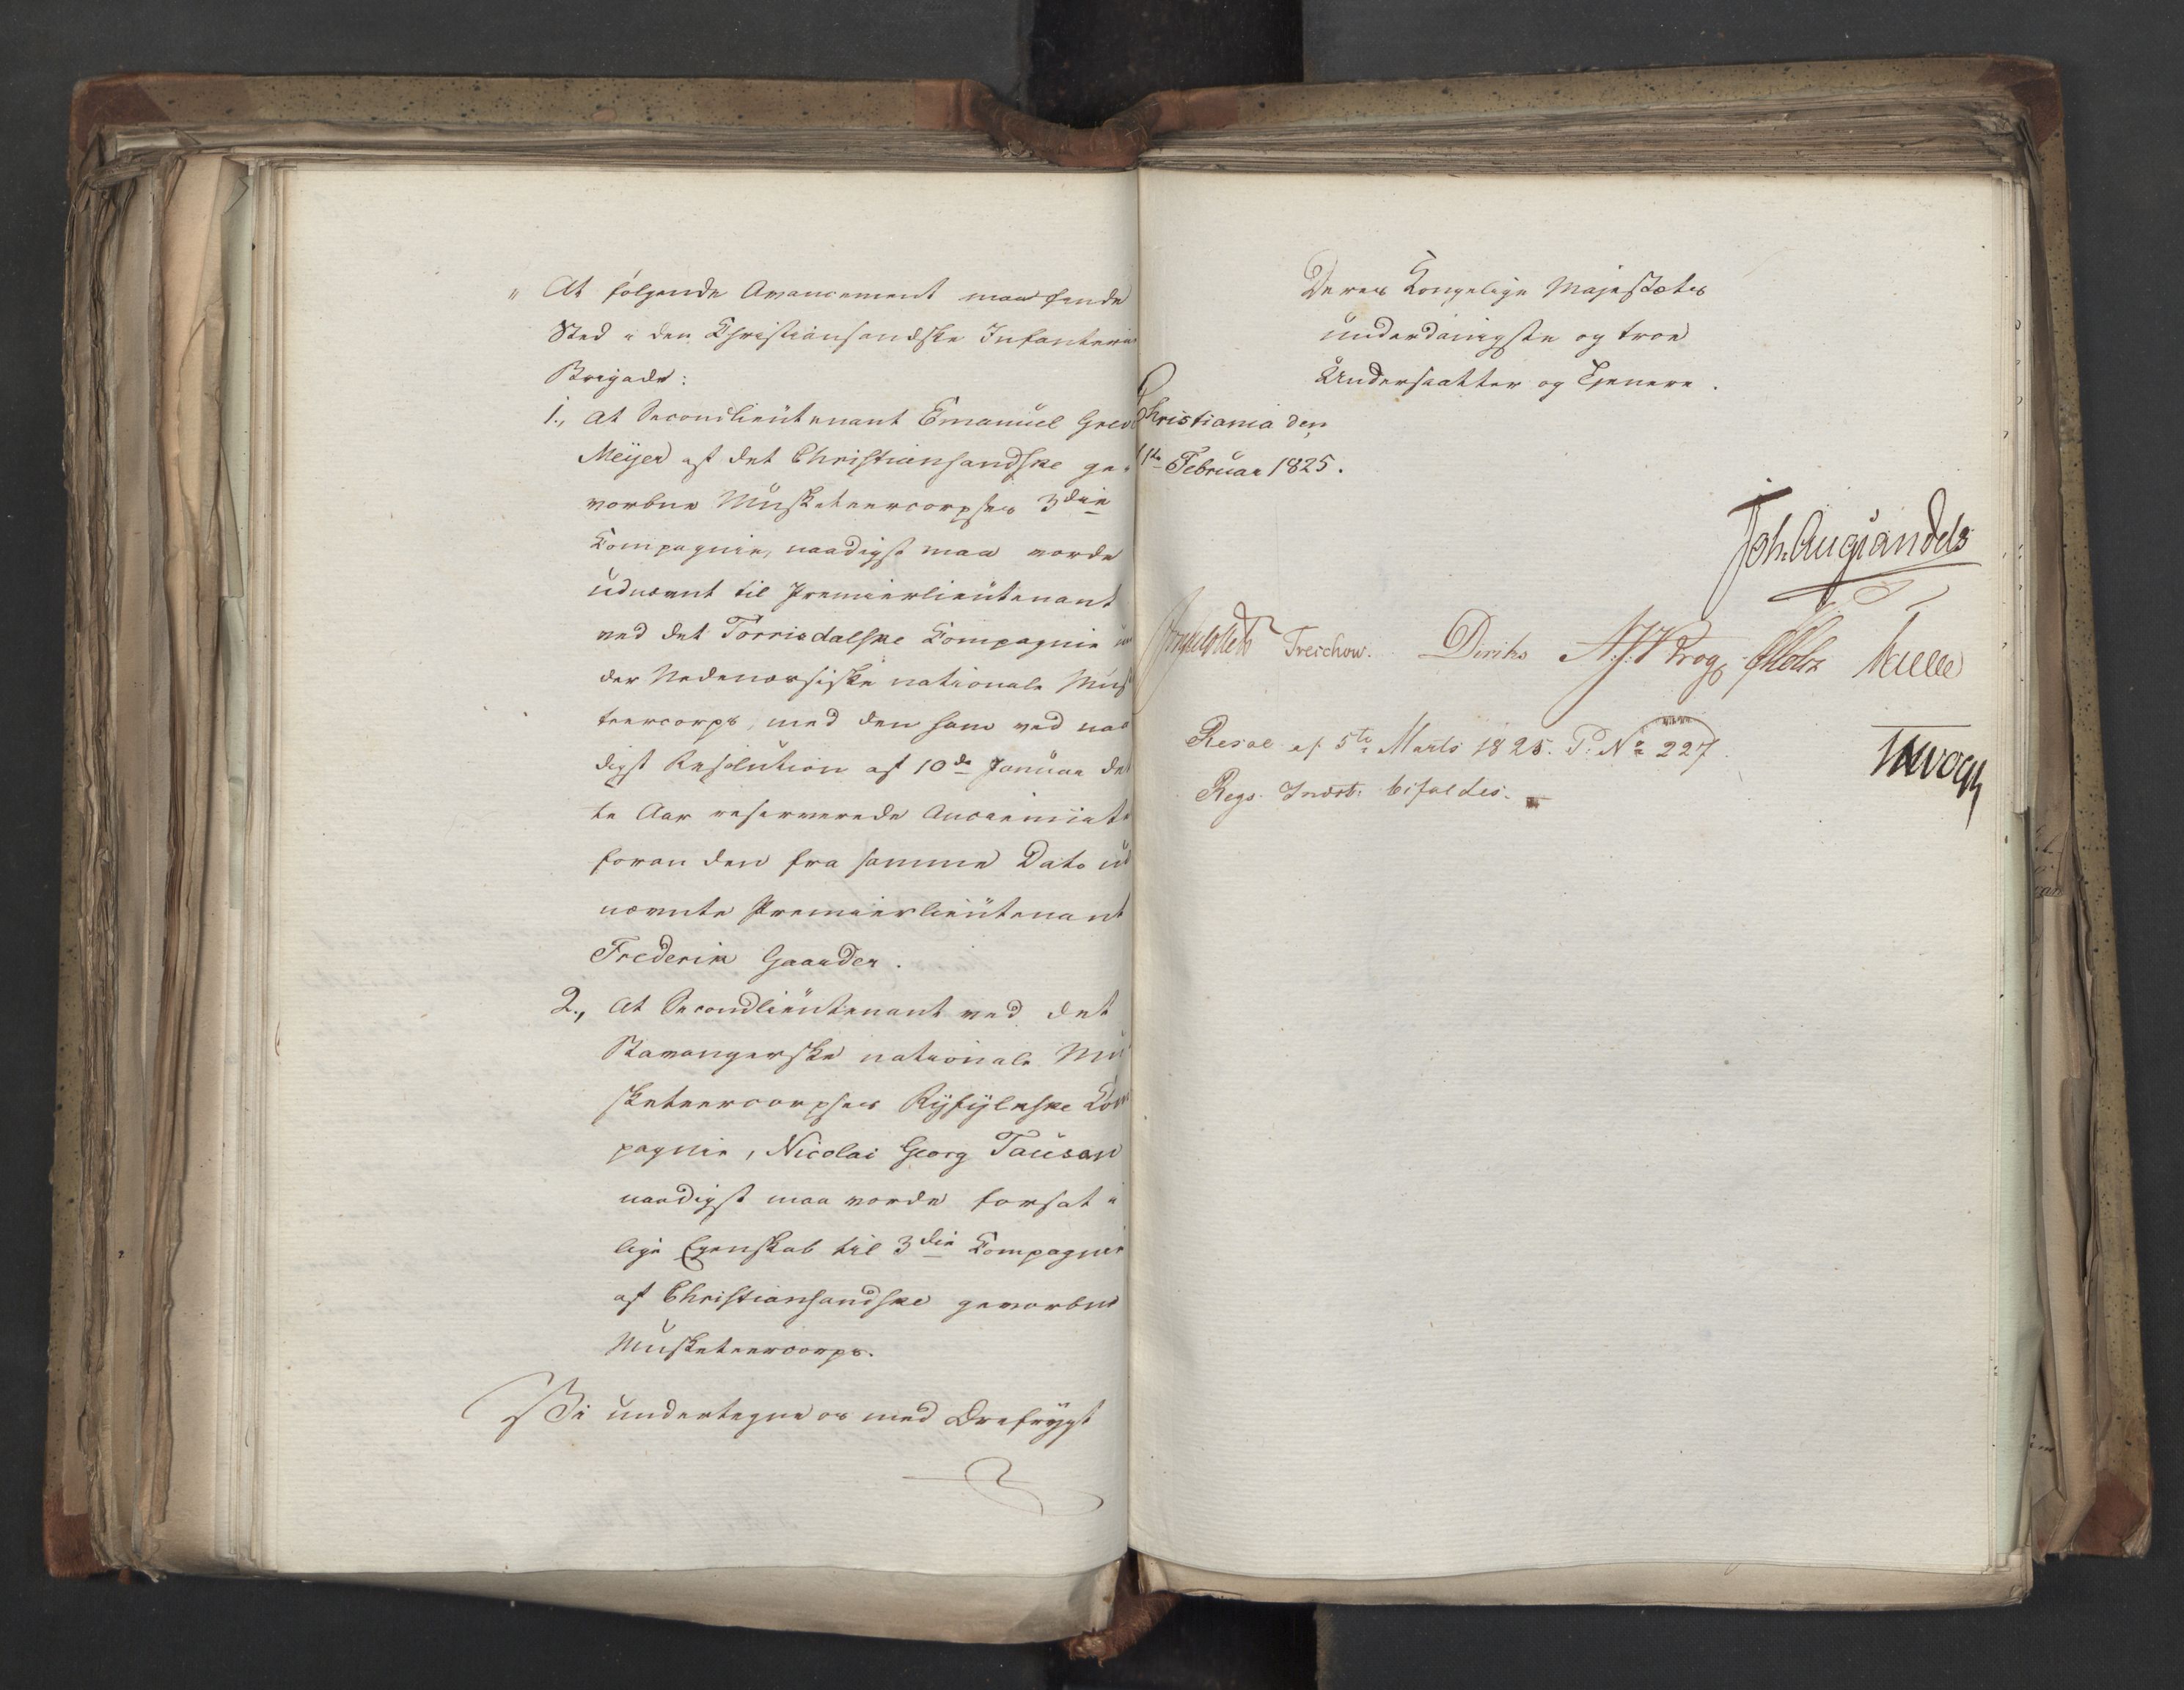 " At følgende Avancement maa finde
Sted i den Christiansandske Infanterie
Brigade:
1., At Secondlieutenant Emanuel Grev
Meijer af det Christiansandske ge-
vorbne Musketeercorpses 3die
Compagnie, naadigst maa vorde
udnævnt til Premierlieutenant
ved det Torrisdalske Compagnie un
der Nedenæsiske nationale Musk
teercorps, med den ham ved naa
digst Resolution af 10de Januar det
te Aar reserverede Anciennitet
foran den fra samme Dato ud
nævnte Premierlieutenant
Frederik Gaarder.
2., At Secondlieutenant ved det
Stavangerske nationale Mu
sketeercorpses Ryfylkske Com
pagnie, Nicolai Georg Tausan
naadigst maa vorde forsat i
lige Egenskab til 3die Compagnie
af Christiansandske gevorbne
Musketeercorps.
Vi undertegne os med Ærefrygt
Deres Kongelige Majestæts
underdanigste og troe
Undersaatter og Tjenere.
Christiania den
1ste Februar 1825.
Joh. Aug. Sandels
Treschow. Diriks Krog Motz
Resol. af 5te Marts 1825. P. No 227.
Regs. Indst. bifaldes.